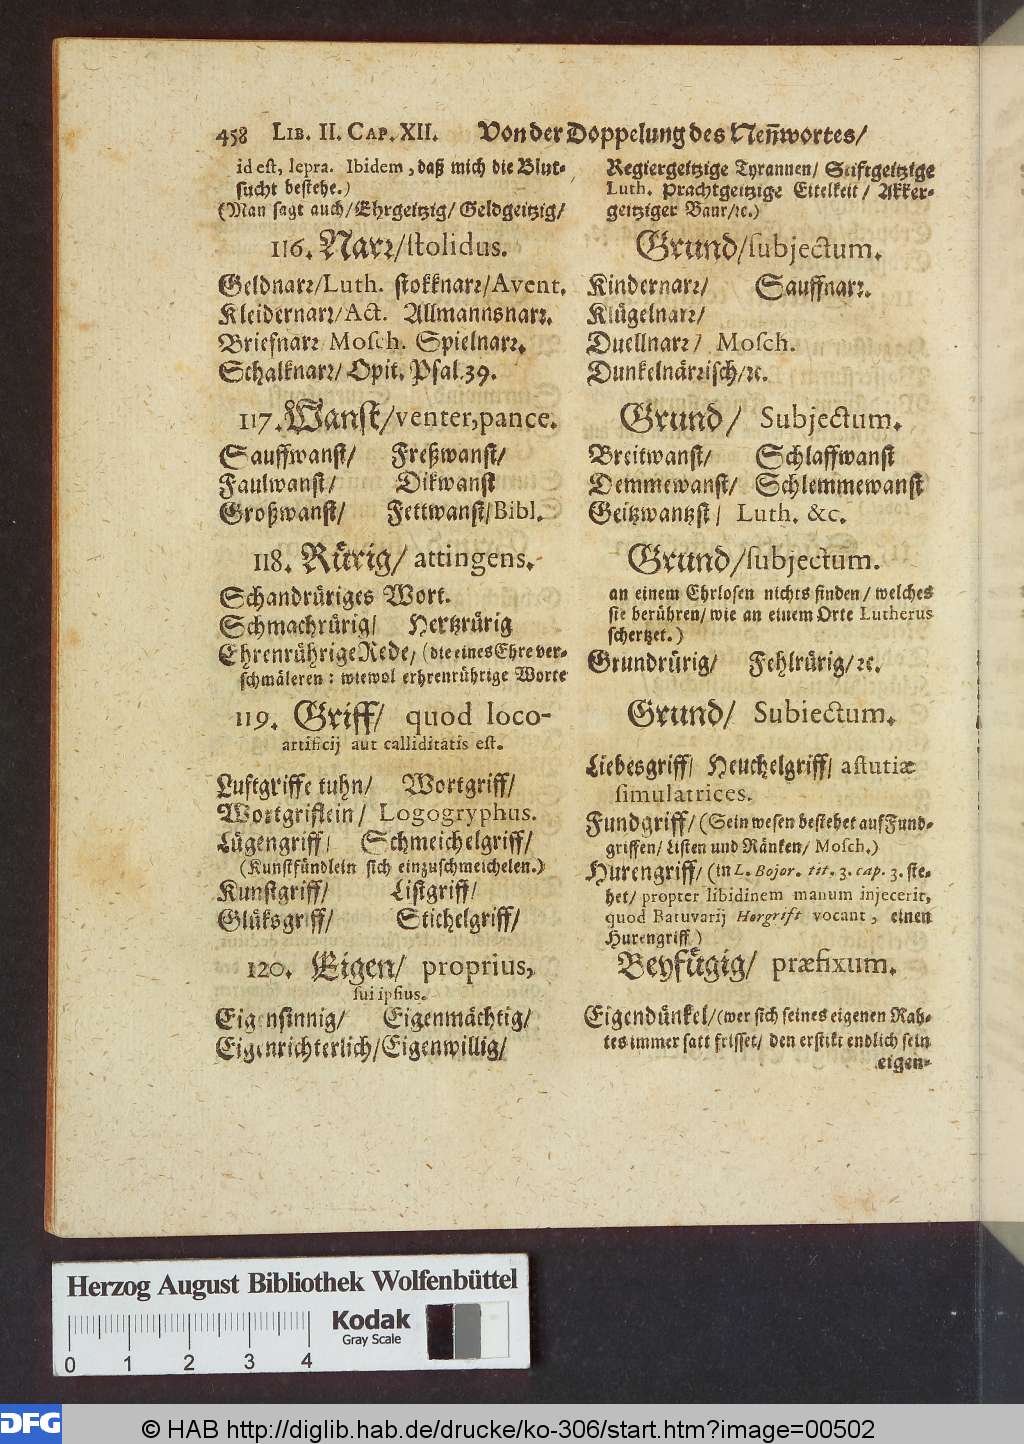 458 LIB. II. CAP. XII. Von der Doppelung des Neñwortes/
id est, lepra. Ibidem, daß mich die Blut-
sucht bestehe.)
(Man sagt auch/Ehrgeitzig/ Geldgeitzig/
Regiergeitzige Tyrannen/ Stiftgeitzige
Luth. Prachtgeitzige Eitelkeit/ Akker-
geitziger Baur/ꝛc.)
116. Narꝛ/stolidus. Grund/subjectum.
Geldnarꝛ/Luth. stokknarꝛ/Avent.
Kleidernarꝛ/Act. Allmannsnarꝛ.
Briefnarꝛ Mosch. Spielnarꝛ.
Schalknarꝛ/ Opit. Psal. 39.
Kindernarꝛ/ Sauffnarꝛ.
Klügelnarꝛ/
Duellnarꝛ/ Mosch.
Dunkelnärꝛisch/ꝛc.
117. Wanst/venter, pance. Grund/ Subjectum.
Sauffwanst/ Freßwanst/
Faulwanst/ Dikwanst
Großwanst/ Fettwanst/Bibl.
Breitwanst/ Schlaffwanst
Demmewanst/ Schlemmewanst
Geitzwantzst/ Luth. &c.
118. Rürig/ attingens. Grund/subjectum.
Schandrüriges Wort.
Schmachrürig/ Hertzrürig
Ehrenrührige Rede/ (die eines Ehre ver-
schmäleren: wiewol erhrenrührige Worte
an einem Ehrlosen nichts finden/ welches
sie berühren/ wie an einem Orte Lutherus
schertzet.)
Grundrürig/ Fehlrürig/ꝛc.
119. Griff/ quod loco- Grund/ Subiectum.
artificij aut calliditatis est.
Luftgriffe tuhn/ Wortgriff/
Wortgriflein/ Logogryphus.
Lügengriff/ Schmeichelgriff/
(Kunstfündlein sich einzuschmeichelen.)
Kunstgriff/ Listgriff/
Glüksgriff/ Stichelgriff/
Liebesgriff/ Heuchelgriff/ astutiæ
simulatrices.
Fundgriff/ (Sein wesen bestehet auf Fund-
griffen/ Listen und Ränken/ Mosch.)
Hurengriff/ (in L. Bojor. tit. 3. cap. 3. ste-
het/ propter libidinem manum injecerit,
quod Batuvarij Horgrift vocant, einen
Hurengriff.)
120. Eigen/ proprius, Beyfügig/ præfixum.
sui ipsius.
Eigensinnig/ Eigenmächtig/
Eigenrichterlich/Eigenwillig/
Eigendünkel/(wer sich seines eigenen Rah-
tes immer satt frisset/ den erstikt endlich sein
eigen-
Herzog August Bibliothek Wolfenbüttel
Kodak
Gray Scale
0 1 2 3 4
DFG
© HAB http://diglib.hab.de/drucke/ko-306/start.htm?image=00502